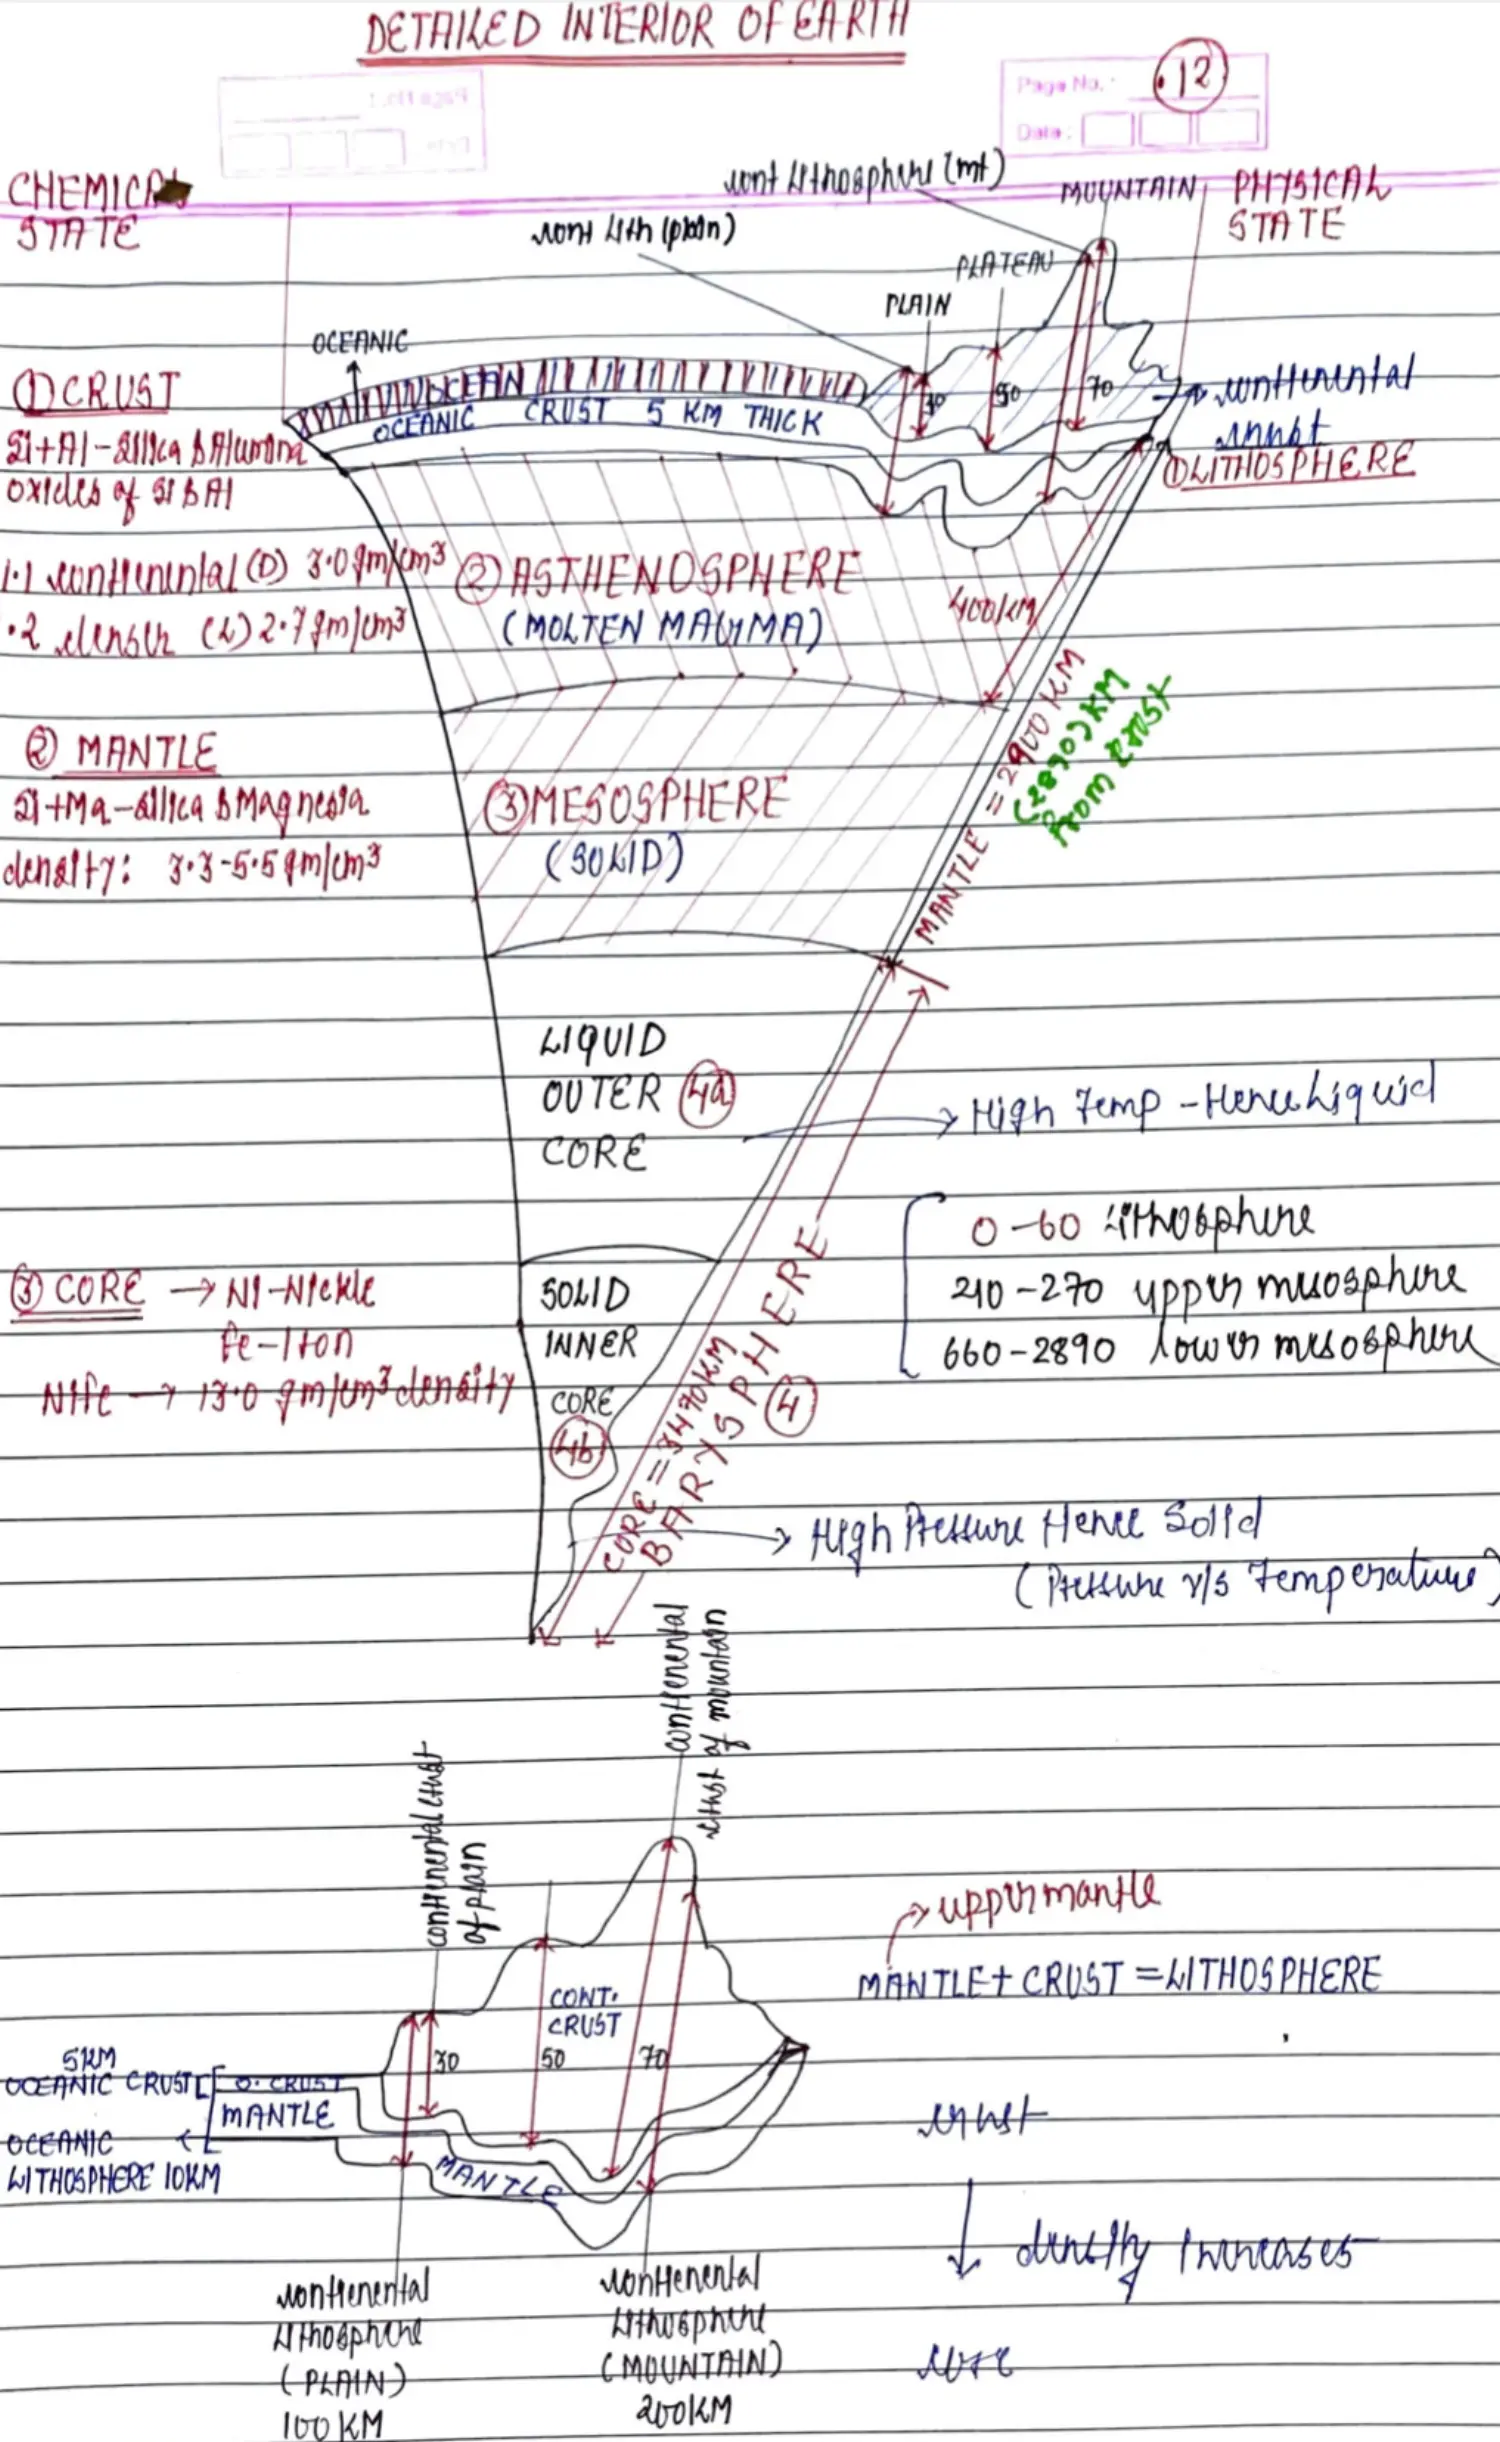 DETAILED INTERIOR OF EARTH
Page No. : 12
Date :
CHEMICAL
STATE
cont lithosphere (mt)
MOUNTAIN
PHYSICAL
STATE
cont lith (plain)
PLATEAU
PLAIN
OCEANIC
① CRUST
OCEAN
OCEANIC CRUST 5 KM THICK
30
50
70
continental
Si+Al - Silica & Alumina
oxides of Si & Al
① LITHOSPHERE
1.1 continental (D) 3.0 gm/cm³
.2 denser (L) 2.7 gm/cm³
② ASTHENOSPHERE
(MOLTEN MAGMA)
400KM
② MANTLE
Si+Ma - Silica & Magnesia
density: 3.3-5.5 gm/cm³
③ MESOSPHERE
(SOLID)
MANTLE = 2900 KM
(2890) KM
From crust
LIQUID
OUTER 4a
CORE
High Temp - Hence Liquid
0 - 60 Lithosphere
210 - 270 upper mesosphere
660 - 2890 lower mesosphere
③ CORE → Ni - Nickle
Fe - Iron
Nife → 13.0 gm/cm³ density
SOLID
INNER
CORE
4b
CORE = 3470KM
BARYSPHERE
4
High Pressure Hence Solid
(Pressure v/s Temperature)
continental crust
of plain
continental
crust of mountain
upper mantle
MANTLE + CRUST = LITHOSPHERE
CONT.
CRUST
30
50
70
5KM
OCEANIC CRUST
O. CRUST
MANTLE
OCEANIC
LITHOSPHERE 10KM
MANTLE
crust
↓ density increases
core
continental
lithosphere
(PLAIN)
100 KM
continental
lithosphere
(MOUNTAIN)
200KM